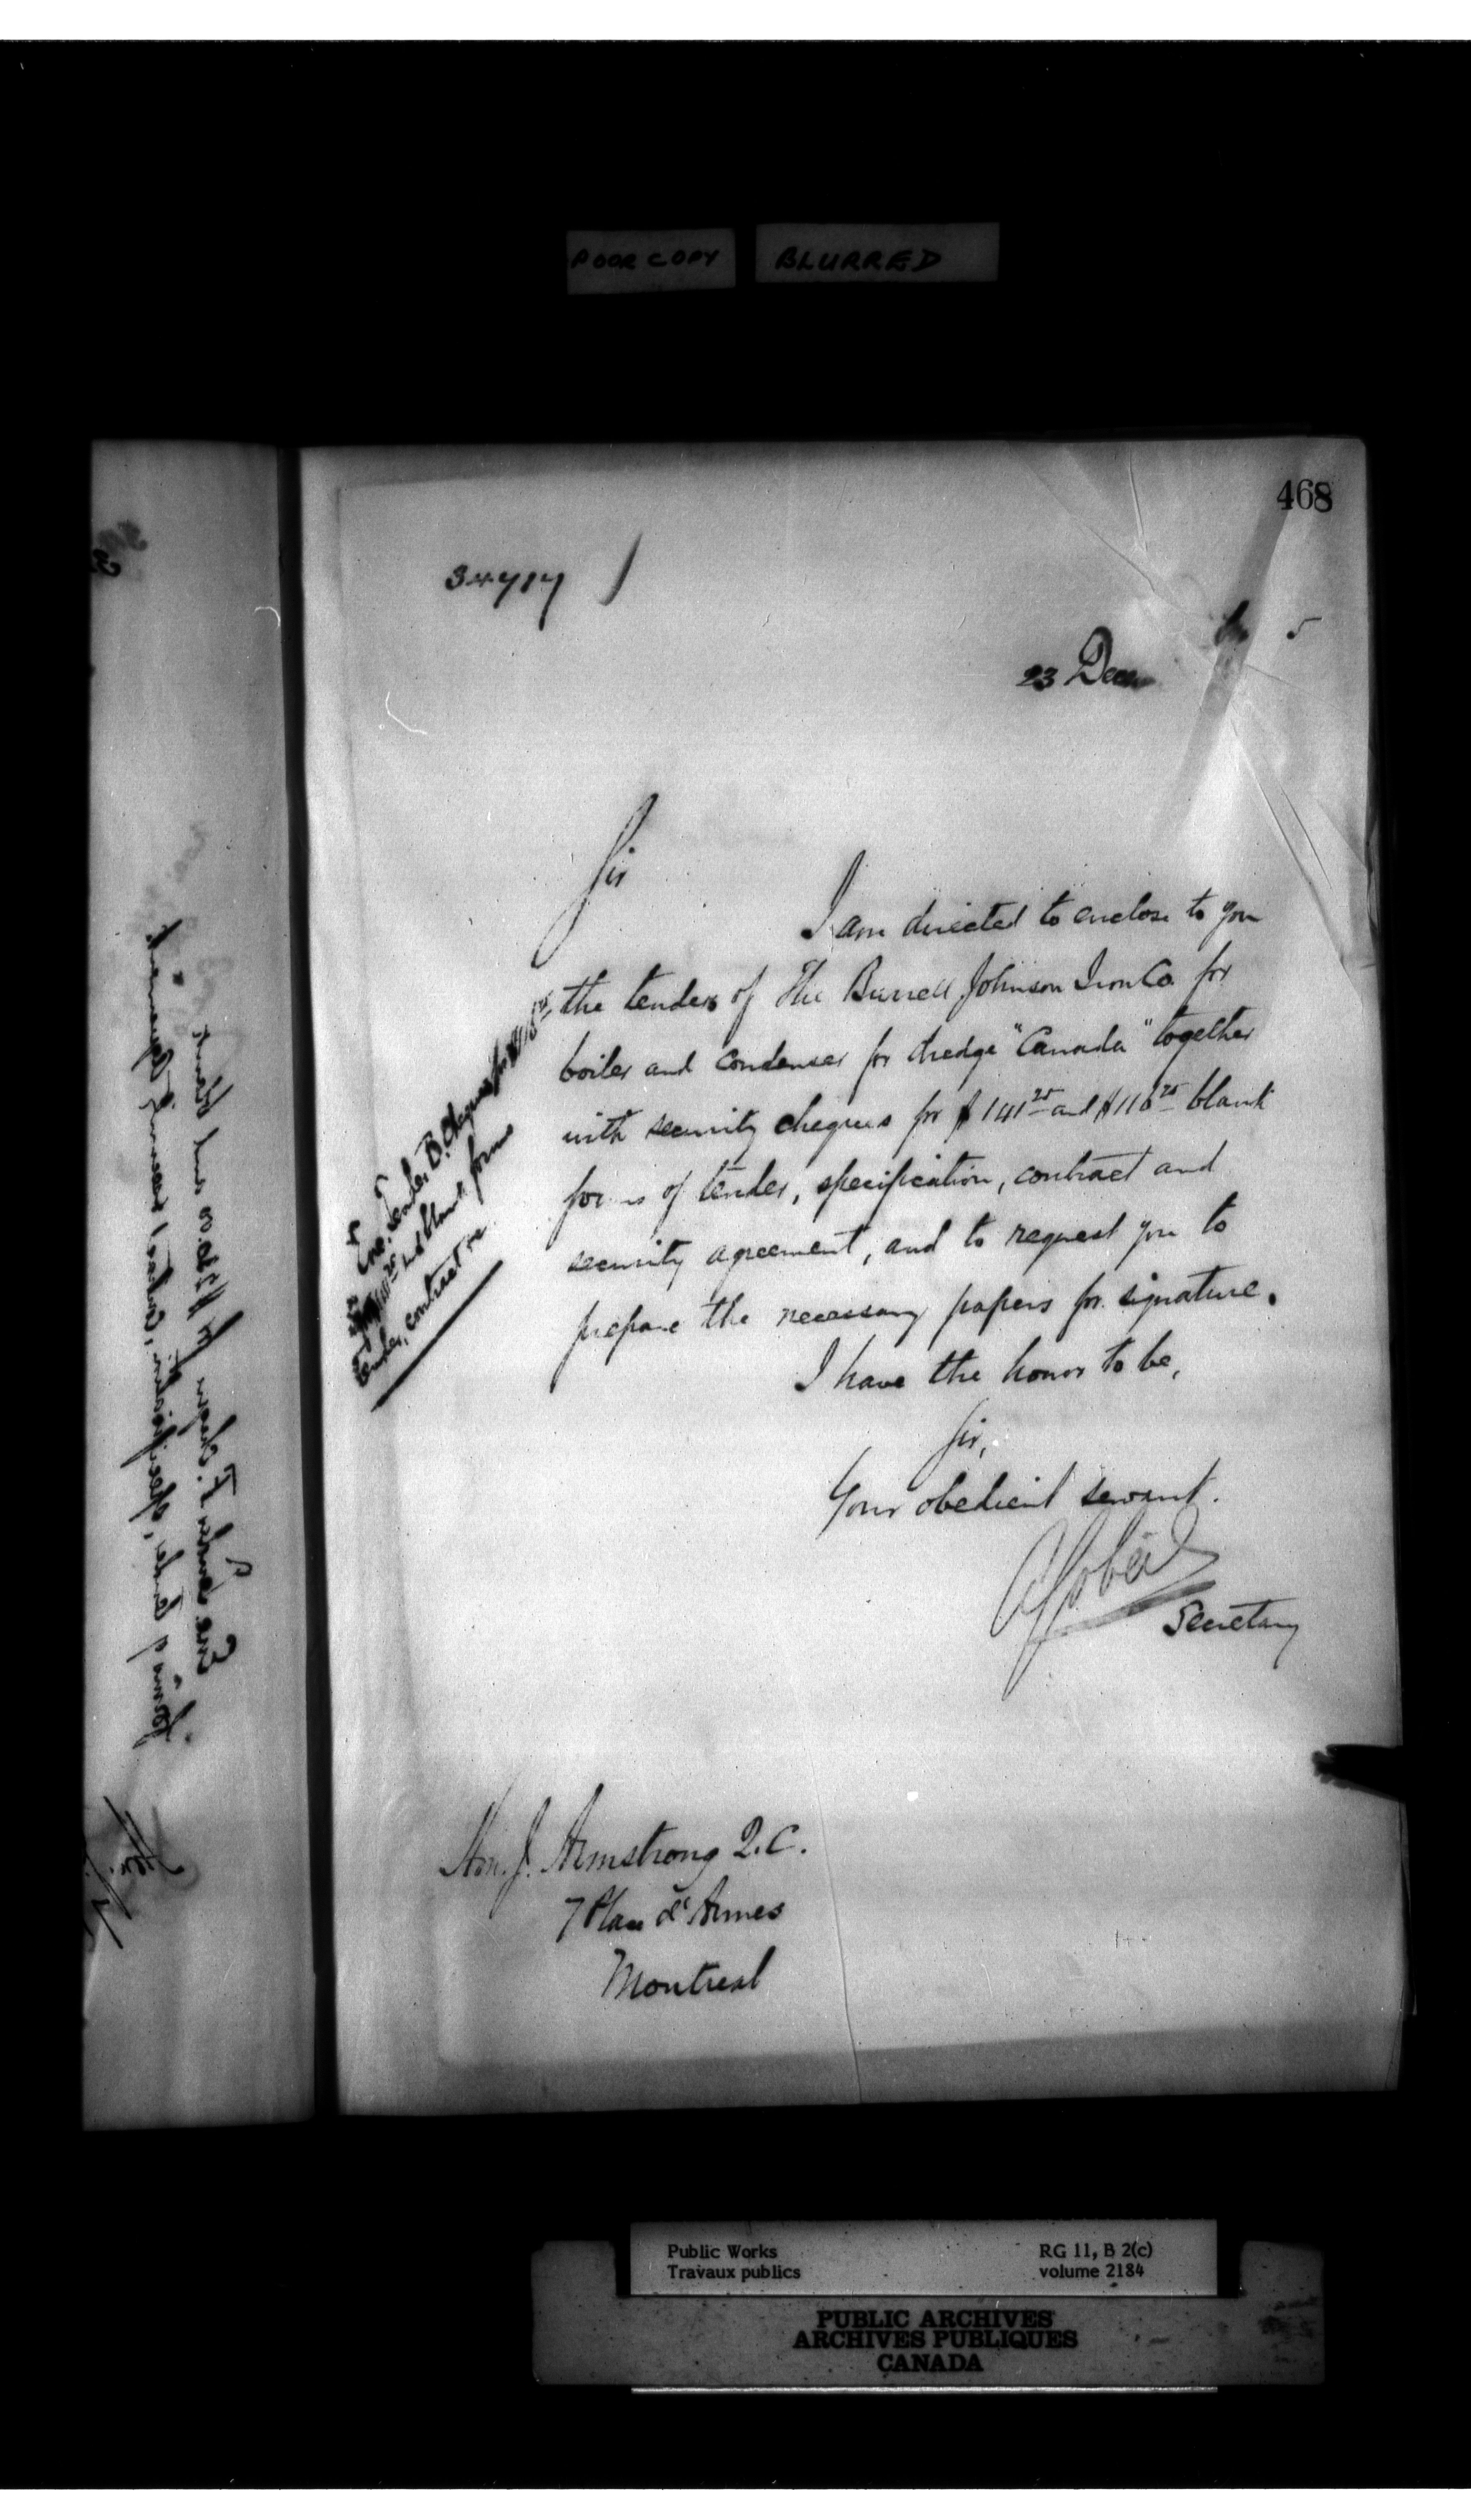 POOR COPY BLURRED
468
34717
23 Decem 5
Sir
I am directed to enclose to you
the tenders of The Burrell Johnson Iron Co. for
boiler and condenser for dredge "Canada" together
with security cheques for $141 25 and $116 25 blank
forms of tender, specification, contract and
security agreement, and to request you to
prepare the necessary papers for signature.
I have the honor to be,
Sir,
Your obedient servant.
AGobeil
Secretary
Enc. tender B. cheques for
and blank forms
tender, contract re
Hon. J. Armstrong Q.C.
7 Place d'Armes
Montreal
Public Works
Travaux publics
RG 11, B 2(c)
volume 2184
PUBLIC ARCHIVES
ARCHIVES PUBLIQUES
CANADA